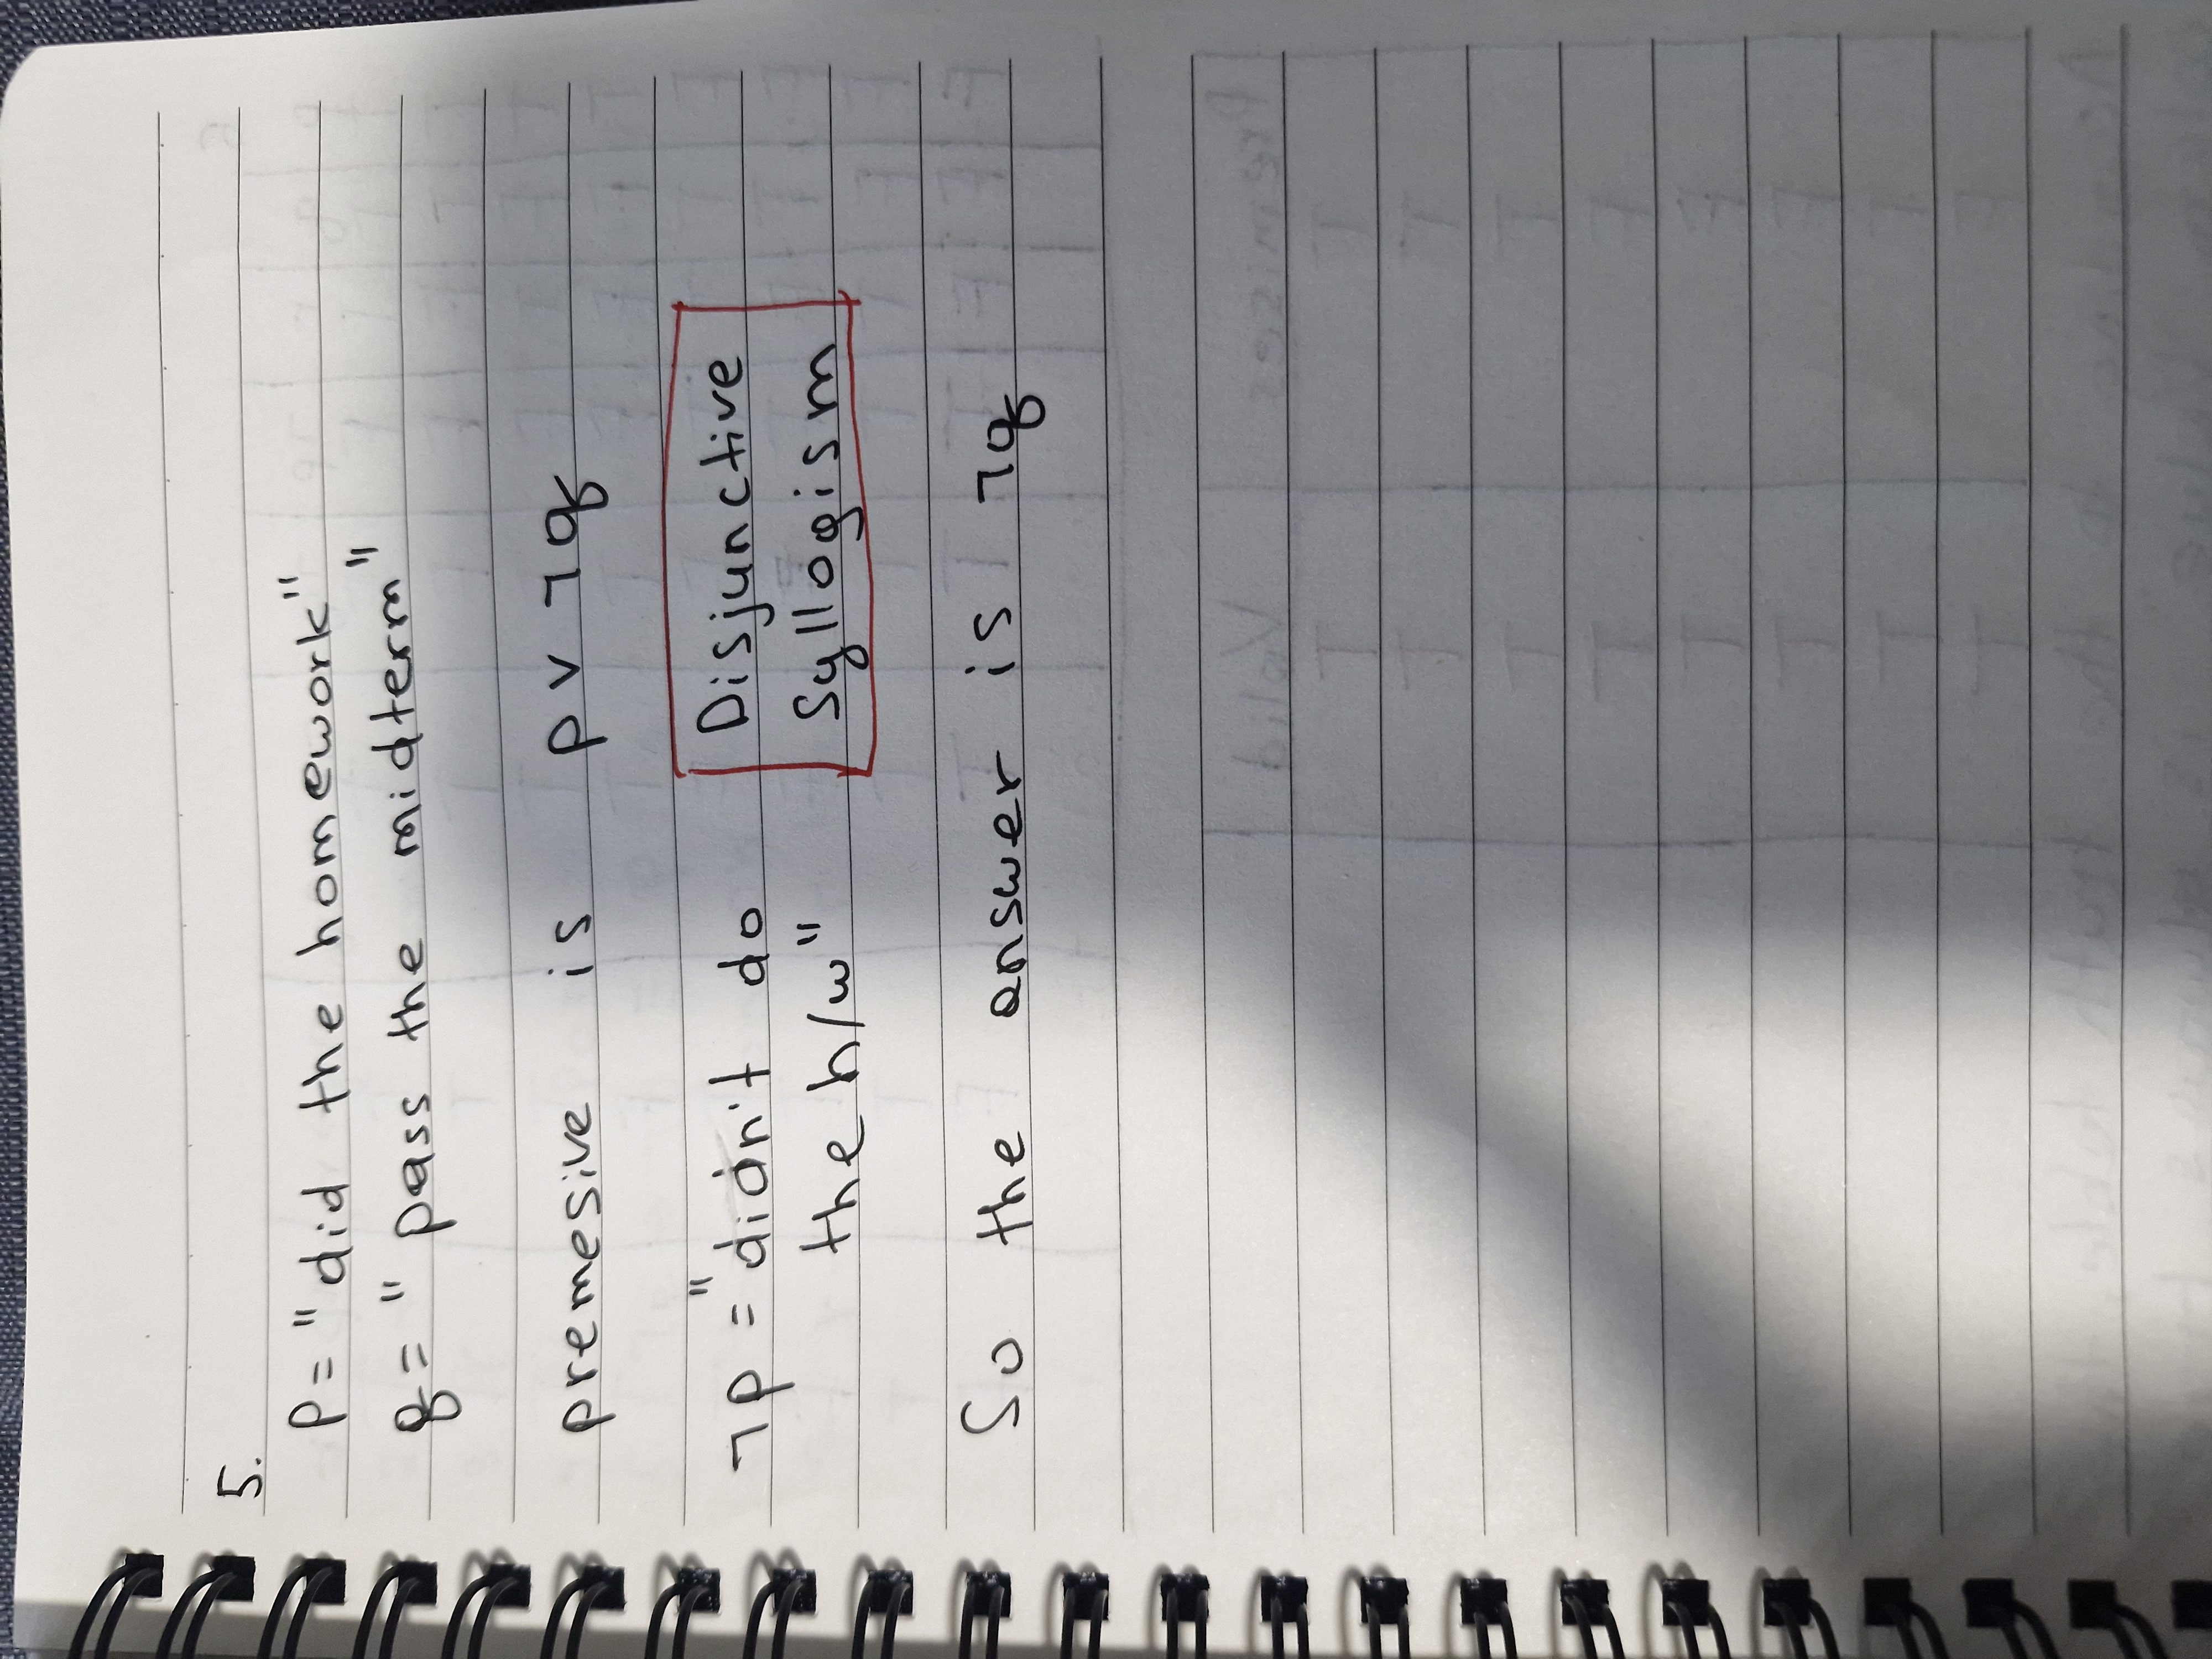 5.
P = "did the homework"
q = "pass the midterm"
premesive is p ∨ ¬q
¬p = "didn't do
the h/w"
Disjunctive
Syllogism
So the answer is ¬q
Premises Valid